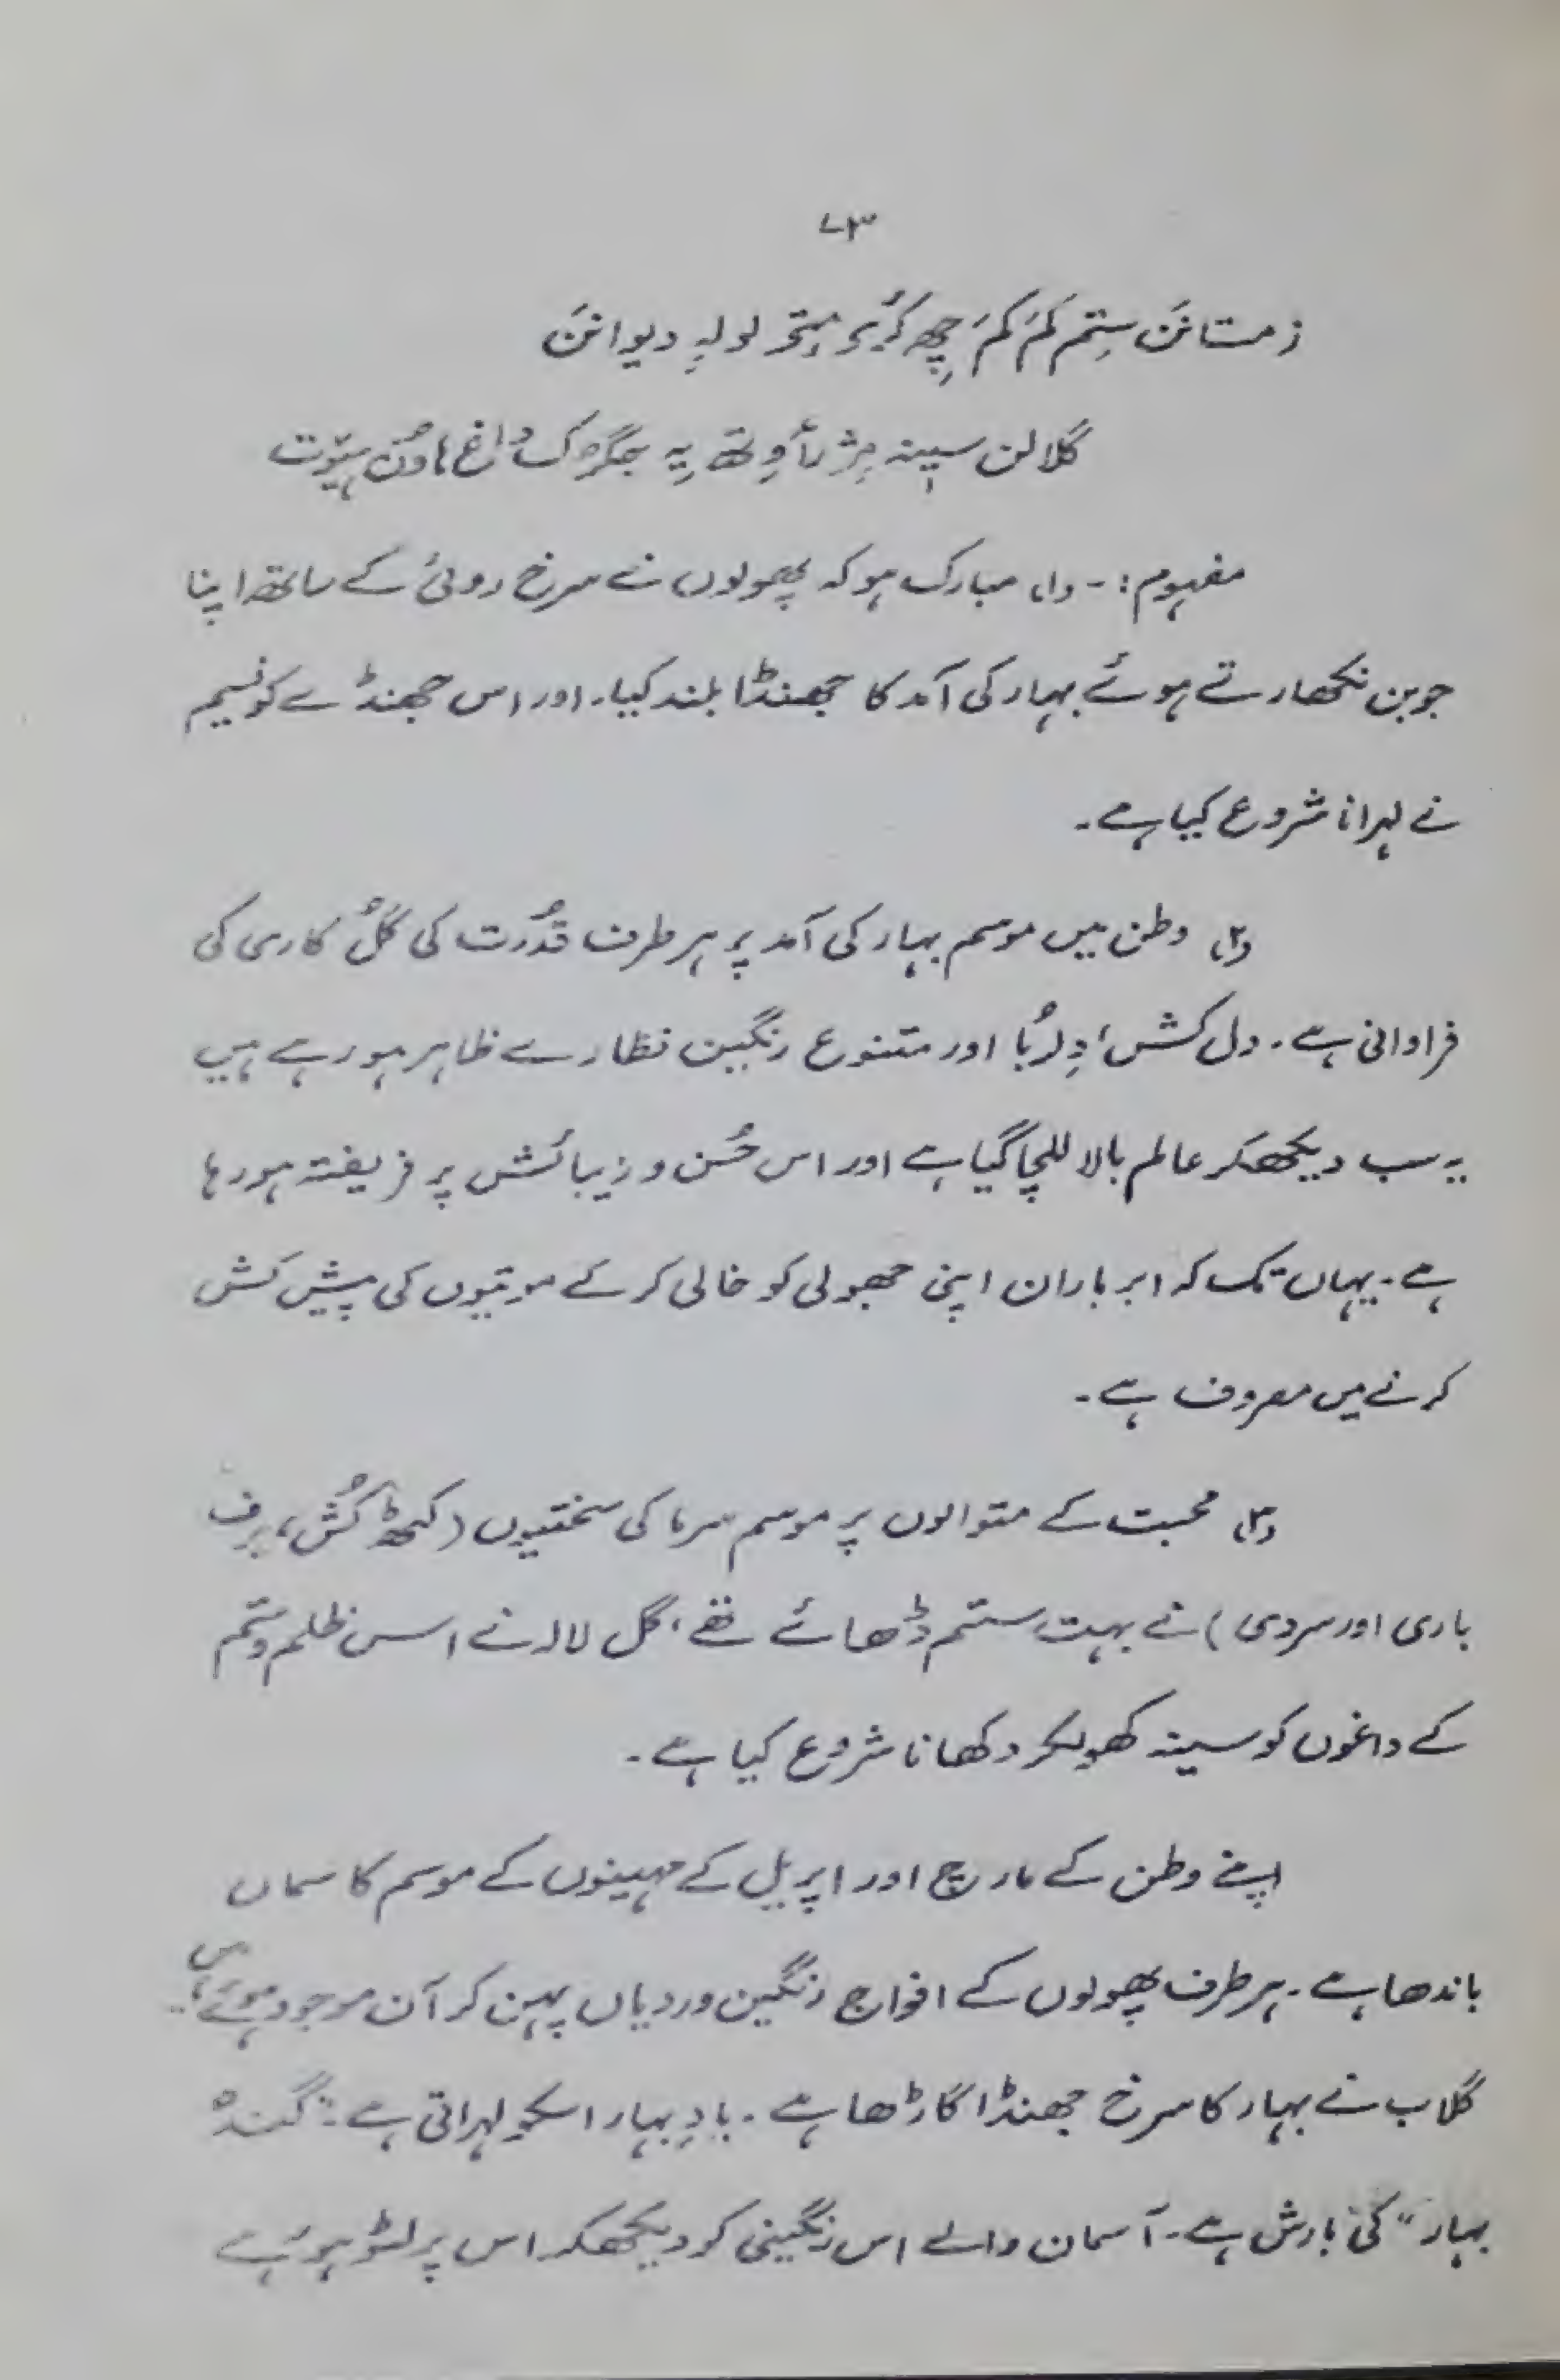 ۷۳
زمستانَن ستِم کَم کَم چِھ کٔرؠ مِتؠ لولہٕ دیوانَن
گلالن سینہٕ مژرٲوِتھ یہِ جگرُک داغ ہاوُن ہیوٚت
مفہوم :- (۱) مبارک ہو کہ پھولوں نے سرخ روئی کے ساتھ اپنا
جوبن نکھارتے ہوئے بہار کی آمد کا جھنڈا بلند کیا۔ اور اس جھنڈے کو نسیم
نے لہرانا شروع کیا ہے۔
(۲) وطن میں موسم بہار کی آمد پر ہر طرف قُدرت کی گُل کاری کی
فراوانی ہے۔ دل کش، دِلرُبا اور متنوع رنگین نظارے ظاہر ہو رہے ہیں
یہ سب دیکھکر عالم بالا للچا گیا ہے اور اس حُسن و زیبائش پر فریفتہ ہو رہا
ہے۔ یہاں تک کہ ابر باران اپنی جھولی کو خالی کر کے موتیوں کی پیش کش
کرنے میں مصروف ہے۔
(۳) محبت کے متوالوں پر موسم سرما کی سختیوں (کٹھ کُش، برف
باری اور سردی) نے بہت ستم ڈھائے تھے، گل لالہ نے اس ظلم و ستم
کے داغوں کو سینہ کھولکر دکھانا شروع کیا ہے۔
اپنے وطن کے مارچ اور اپریل کے مہینوں کے موسم کا سماں
باندھا ہے۔ ہر طرف پھولوں کے افواج رنگین وردیاں پہن کر آن موجود ہوئے ہیں
گلاب نے بہار کا سرخ جھنڈا گاڑھا ہے۔ بادِ بہار اسکو لہراتی ہے۔
بہار" کی بارش ہے۔ آسمان والے اس رنگینی کو دیکھکر اس پر لٹو ہوئے